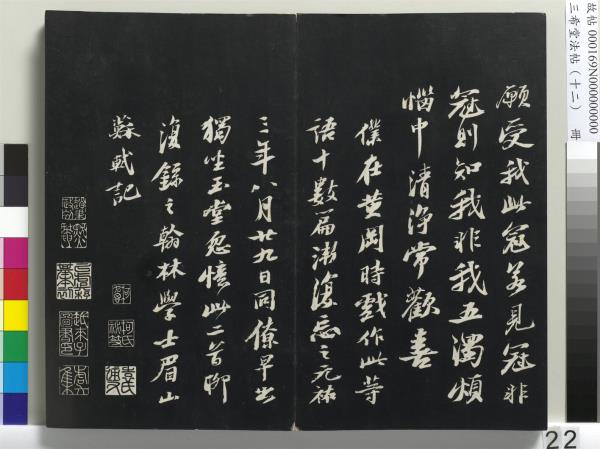 願受我此冠若見冠非
冠則知我非我五濁煩
惱中清浄常歡喜
僕在黄岡時戲作此等
語十數篇漸復忘之元祐
三年八月廿九日同僚早出
獨坐玉堂忽憶此二首聊
復錄之翰林學士眉山
蘇軾記
故帖 000169N000000000
三希堂法帖（十二） 冊
22